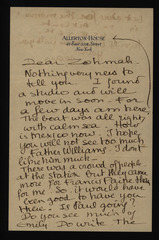 ALLERTON HOUSE
New York
Dear Zohmah.
Nothing very new to
tell you. I found
a studio and will
move in soon. For
a few days am here.
The boat was all right,
with calm sea. Hotel
is so now. I hope
you will not see too much
of Father Williams. I don't
like him much.
There was a crowd of people
at the station. But they came
more for France than
for me. So it would have
been good to have you
there. Is
Do you see much of
Emily. Do write. The